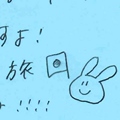 すよ!
旅
!!!!